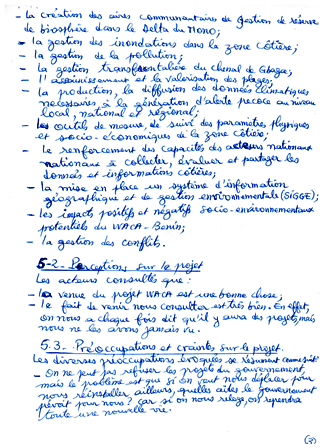 - La création des aires communautaires de gestion de réserve
de biosphère dans le Delta du Mono;
- la gestion des inondations dans la zone côtière;
- la gestion de la pollution;
- la gestion transfrontalière du chenal de Gbaga;
- l'assainissement et la valorisation des plages;
- la production, la diffusion des données climatiques
nécessaires à la génération d'alerte pécoce au niveau
local, national et régional;
- les outils de mesure de suivi des paramètres physiques
et socio-économiques de la zone côtière;
- le renforcement des capacités des acteurs nationaux
nationaux à collecter, évaluer et partager les
données et informations côtières;
- la mise en place un système d'information
géographique et de gestion environnementale (SIGGE);
- les impacts positifs et négatifs socio-environnementaux
potentiels du WACA-Bénin;
- la gestion des conflits.
5-2- Perceptions sur le projet
Les acteurs consultés que :
- la venue du projet WACA est une bonne chose;
- le fait de venir nous consulter est très bien. En effet,
on nous a chaque fois dit qu'il y aura des projets mais
nous ne les avons jamais vu.
5.3- Préoccupations et craintes sur le projet.
Les diverses préoccupations évoquées se résument comme suit:
- On ne peut pas refuser les projets du gouvernement,
mais le problème est que si on veut nous déplacer pour
nous réinstaller ailleurs, quelles aides le gouvernement
prévoit pour nous? car si on nous reloge, on reprendra
toute une nouvelle vie.